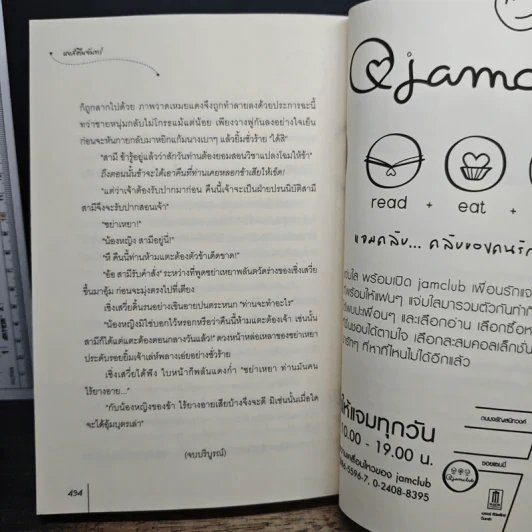 ก็ถูกลากไปด้วย ภาพวาดเหมยแดงจึงถูกทำลายลงด้วยประการฉะนี้
ทว่าชายหนุ่มกลับไม่โกรธแม้แต่น้อย เพียงวางพู่กันลงอย่างใจเย็น
ก่อนจะหันกายกลับมาหยิกแก้มนางเบาๆ แล้วยิ้มชั่วร้าย "ได้สิ"
"สามี ข้ารู้อยู่แล้วว่าสักวันท่านต้องยอมสอนวิชาแปลงโฉมให้ข้า"
ถึงตอนนั้นข้าจะได้เอาคืนที่ท่านเคยหลอกข้าเสียให้เข็ด!
"แต่ว่าเจ้าต้องรับปากมาก่อน คืนนี้เจ้าจะเป็นฝ่ายปรนนิบัติสามี
สามีจึงจะรับปากสอนเจ้า"
"ซย่าเหยา!"
"น้องหญิง สามีอยู่นี่!"
"หึ คืนนี้ท่านห้ามแตะต้องตัวข้าเด็ดขาด!"
"อ้อ สามีรับคำสั่ง" ระหว่างที่พูดซย่าเหยาพลันตวัดร่างของเซิ่งเสวี่ย
ขึ้นมาอุ้ม ก่อนจะมุ่งตรงไปที่เตียง
เซิ่งเสวี่ยดิ้นรนอย่างเขินอายปนตระหนก "ท่านจะทำอะไร"
"น้องหญิงมิใช่บอกไว้หรอกหรือว่าคืนนี้ห้ามแตะต้องเจ้า เช่นนั้น
สามีก็ได้แต่แตะต้องตอนกลางวันแล้ว!" ดวงหน้าหล่อเหลาของซย่าเหยา
ประดับรอยยิ้มเจ้าเล่ห์พลางเอ่ยอย่างชั่วร้าย
เซิ่งเสวี่ยได้ฟัง ใบหน้าก็พลันแดงก่ำ "ซย่าเหยา ท่านมันคน
ไร้ยางอาย..."
"กับน้องหญิงของข้า ไร้ยางอายเสียบ้างจึงจะดี มิเช่นนั้นเมื่อใด
จะได้อุ้มบุตรเล่า"
(จบบริบูรณ์)
494
jamcl
read + eat +
แจมคลับ... คลับของคนรัก
แจ่มใส พร้อมเปิด jamclub เพื่อนรักแจ่
พร้อมให้แฟนๆ แจ่มใสมารวมตัวกันทำกิ
แปะเพื่อนๆ และเลือกอ่าน เลือกซื้อห
ชื่นชอบได้ตามใจ เลือกสะสมคอลเล็กชั่น
น่ารักๆ ที่หาที่ไหนไม่ได้อีกแล้ว
ให้แจมทุกวัน
10.00 - 19.00 น.
ความเคลื่อนไหวของ jamclub
6596-7, 0-2408-8395
jamclub
ถนนจรัญสนิทวงศ์